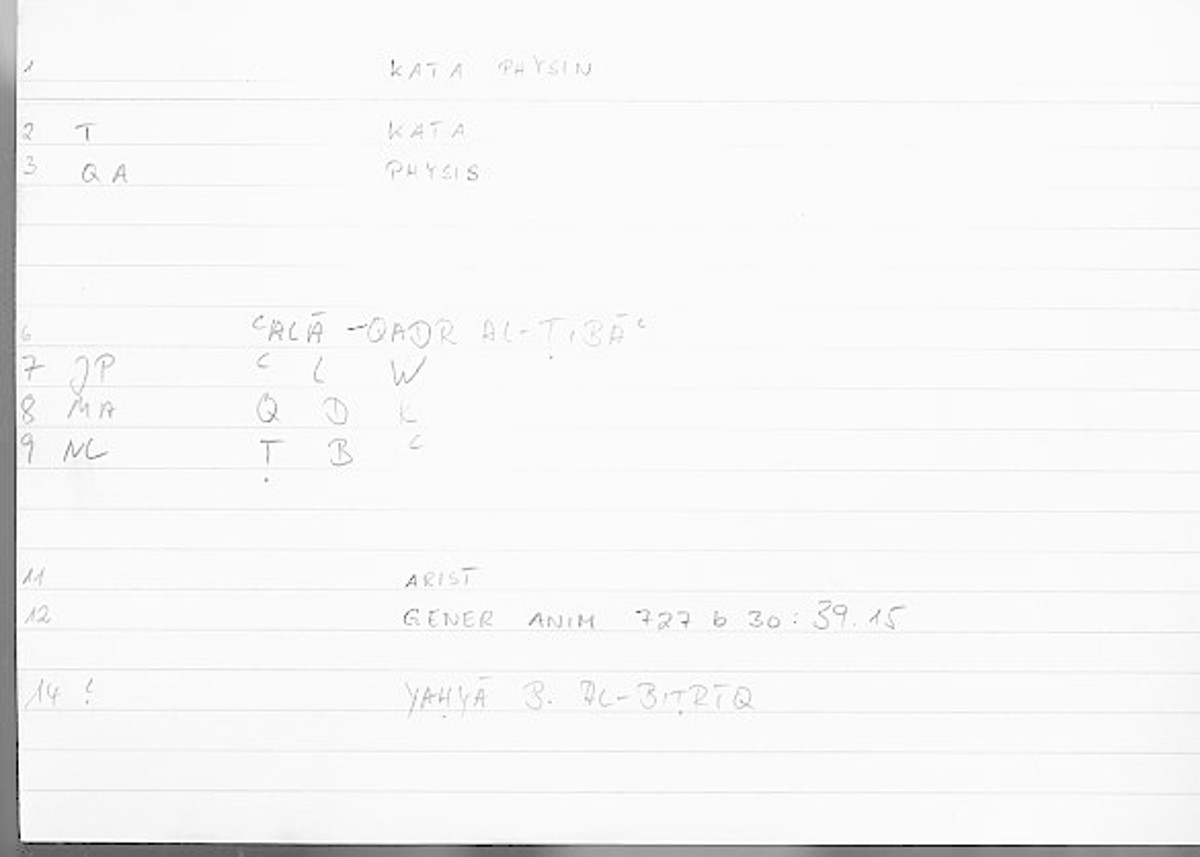 1 KATA PHYSIN
2 T KATA
3 QA PHYSIS
6 ʿALĀ -QADR AL-ṬIBĀʿ
7 JP ʿ L W
8 MA Q D R
9 NL Ṭ B ʿ
11 ARIST
12 GENER ANIM 727 b 30 : 39.15
14 YAḤYĀ B. AL-BIṬRĪQ